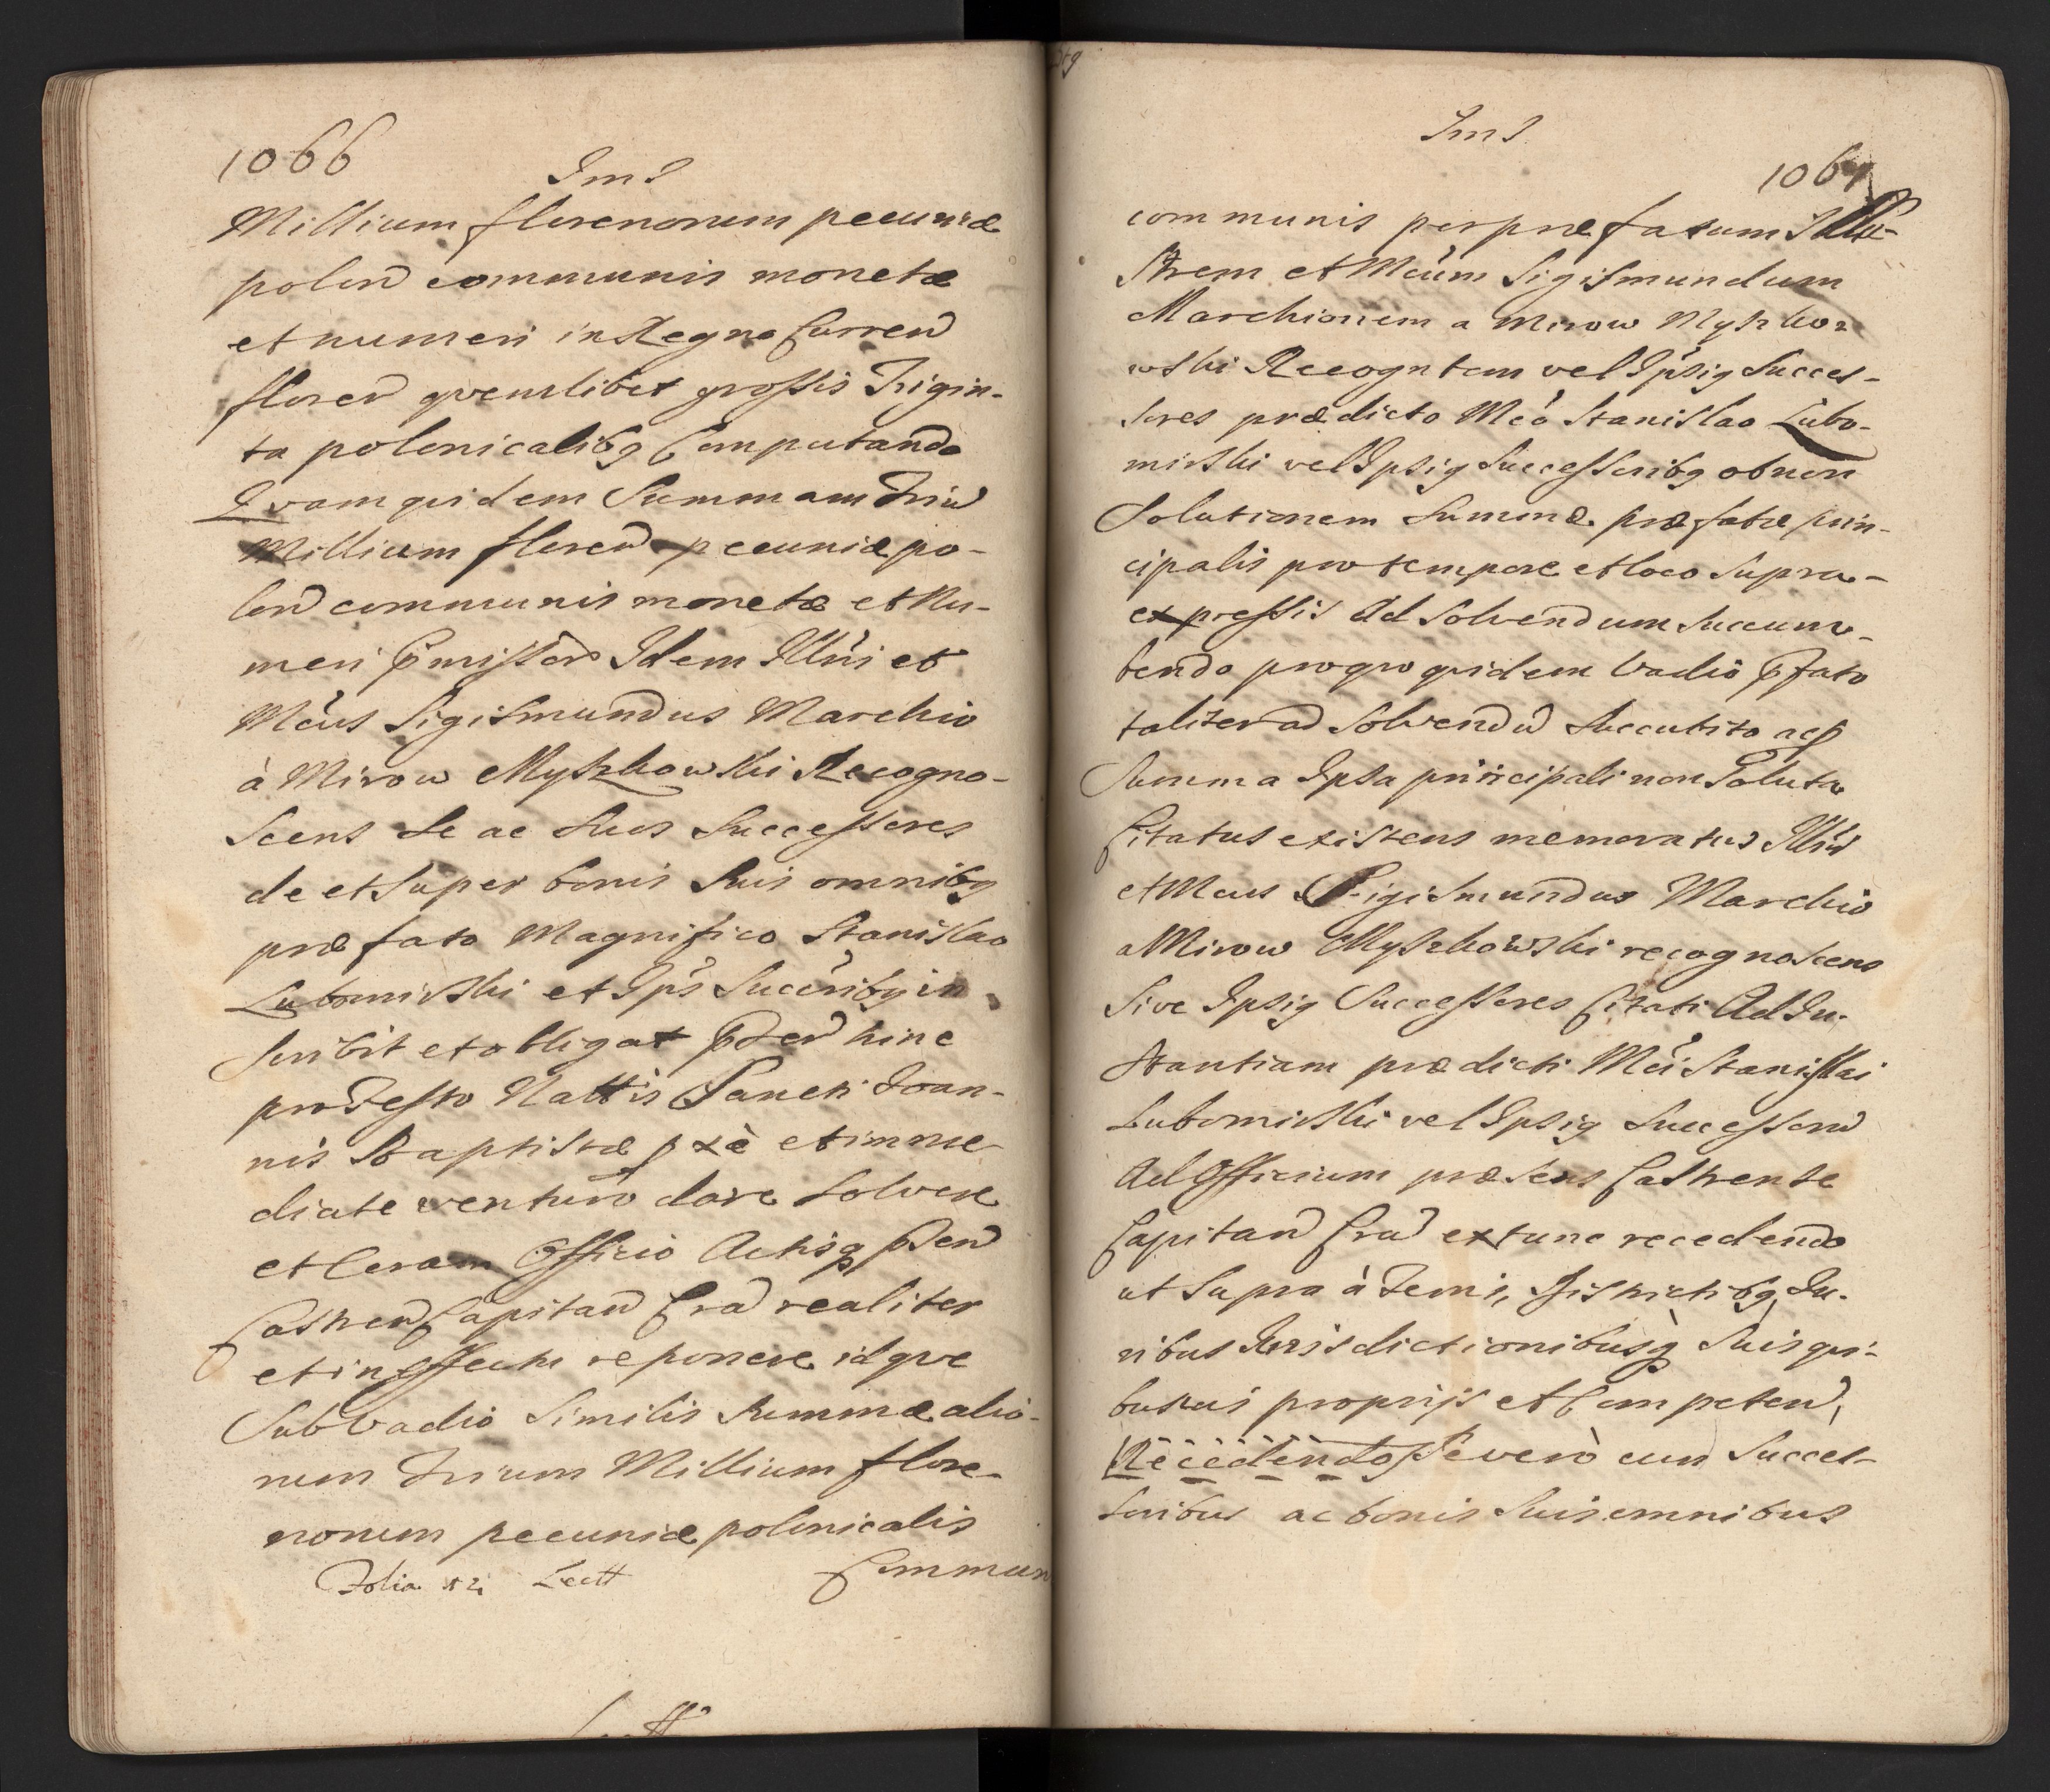 1066
Millium florenorum pecuniæ
polon communis monetæ
et numeri in Regno Curren
floren quemlibet grossis Trigin-
ta polonicalibq Computando
Quam quidem Summam Triu
Millium floren pecuniæ po-
lon communis monetæ et Nu-
meri Idem Illris et
Mcus Sigismundus Marchio
à Mirow Myszkowski Recogno-
scens Se ac Suos Successores
de et super bonis Suis omnibq
præfato Magnifico Stanislao
Lubomirski et Ips Succribq in
scribit et obligat hinc
pro Festo Nattis Sancti Joan-
nis Baptistæ pxè et imme
diate venturo dare solvere
et Coram Officio Actisq
Castren Capitan Cra realiter
et in effectu reponere idque
Sub Vadio Similis Summæ alio-
rum Trium Millium flore-
norum pecuniæ polonicalis
Folia Lectt Commun
1067
communis per præfatum Illu-
strem et Mcum Sigismundum
Marchionem a Mirow Myszko-
wski Recogntem vel Ipsiq Succes-
sores prædicto Mco Stanislao Lubo-
mirski vel Ipsiq Successoribq ob non
Solutionem Summæ præfatæ prin-
cipalis pro tempore et loco Supra-
expressis Ad Solvendum Succum-
bendo pro quo quidem Vadio pfato
taliter ad Solvendu Succubito acp
Summa Ipsa principali non Soluta
Citatus existens memoratus Illris
et Mcus Sigismundus Marchio
a Mirow Myszkowski recognoscens
Sive Ipsiq Successores Citati Ad In-
stantiam prædicti Mci Stanislai
Lubomirski vel Ipsiq Successoru
Ad Officium præsens Castrense
Capitan Cra extunc recedendo
ut Supra à Terris, Districtibq, Ju-
ribus Jurisdictionibusq Suis qui-
busvis proprijs et Competen,
Recedendo Se vero cum Succes-
soribus ac bonis Suis omnibus